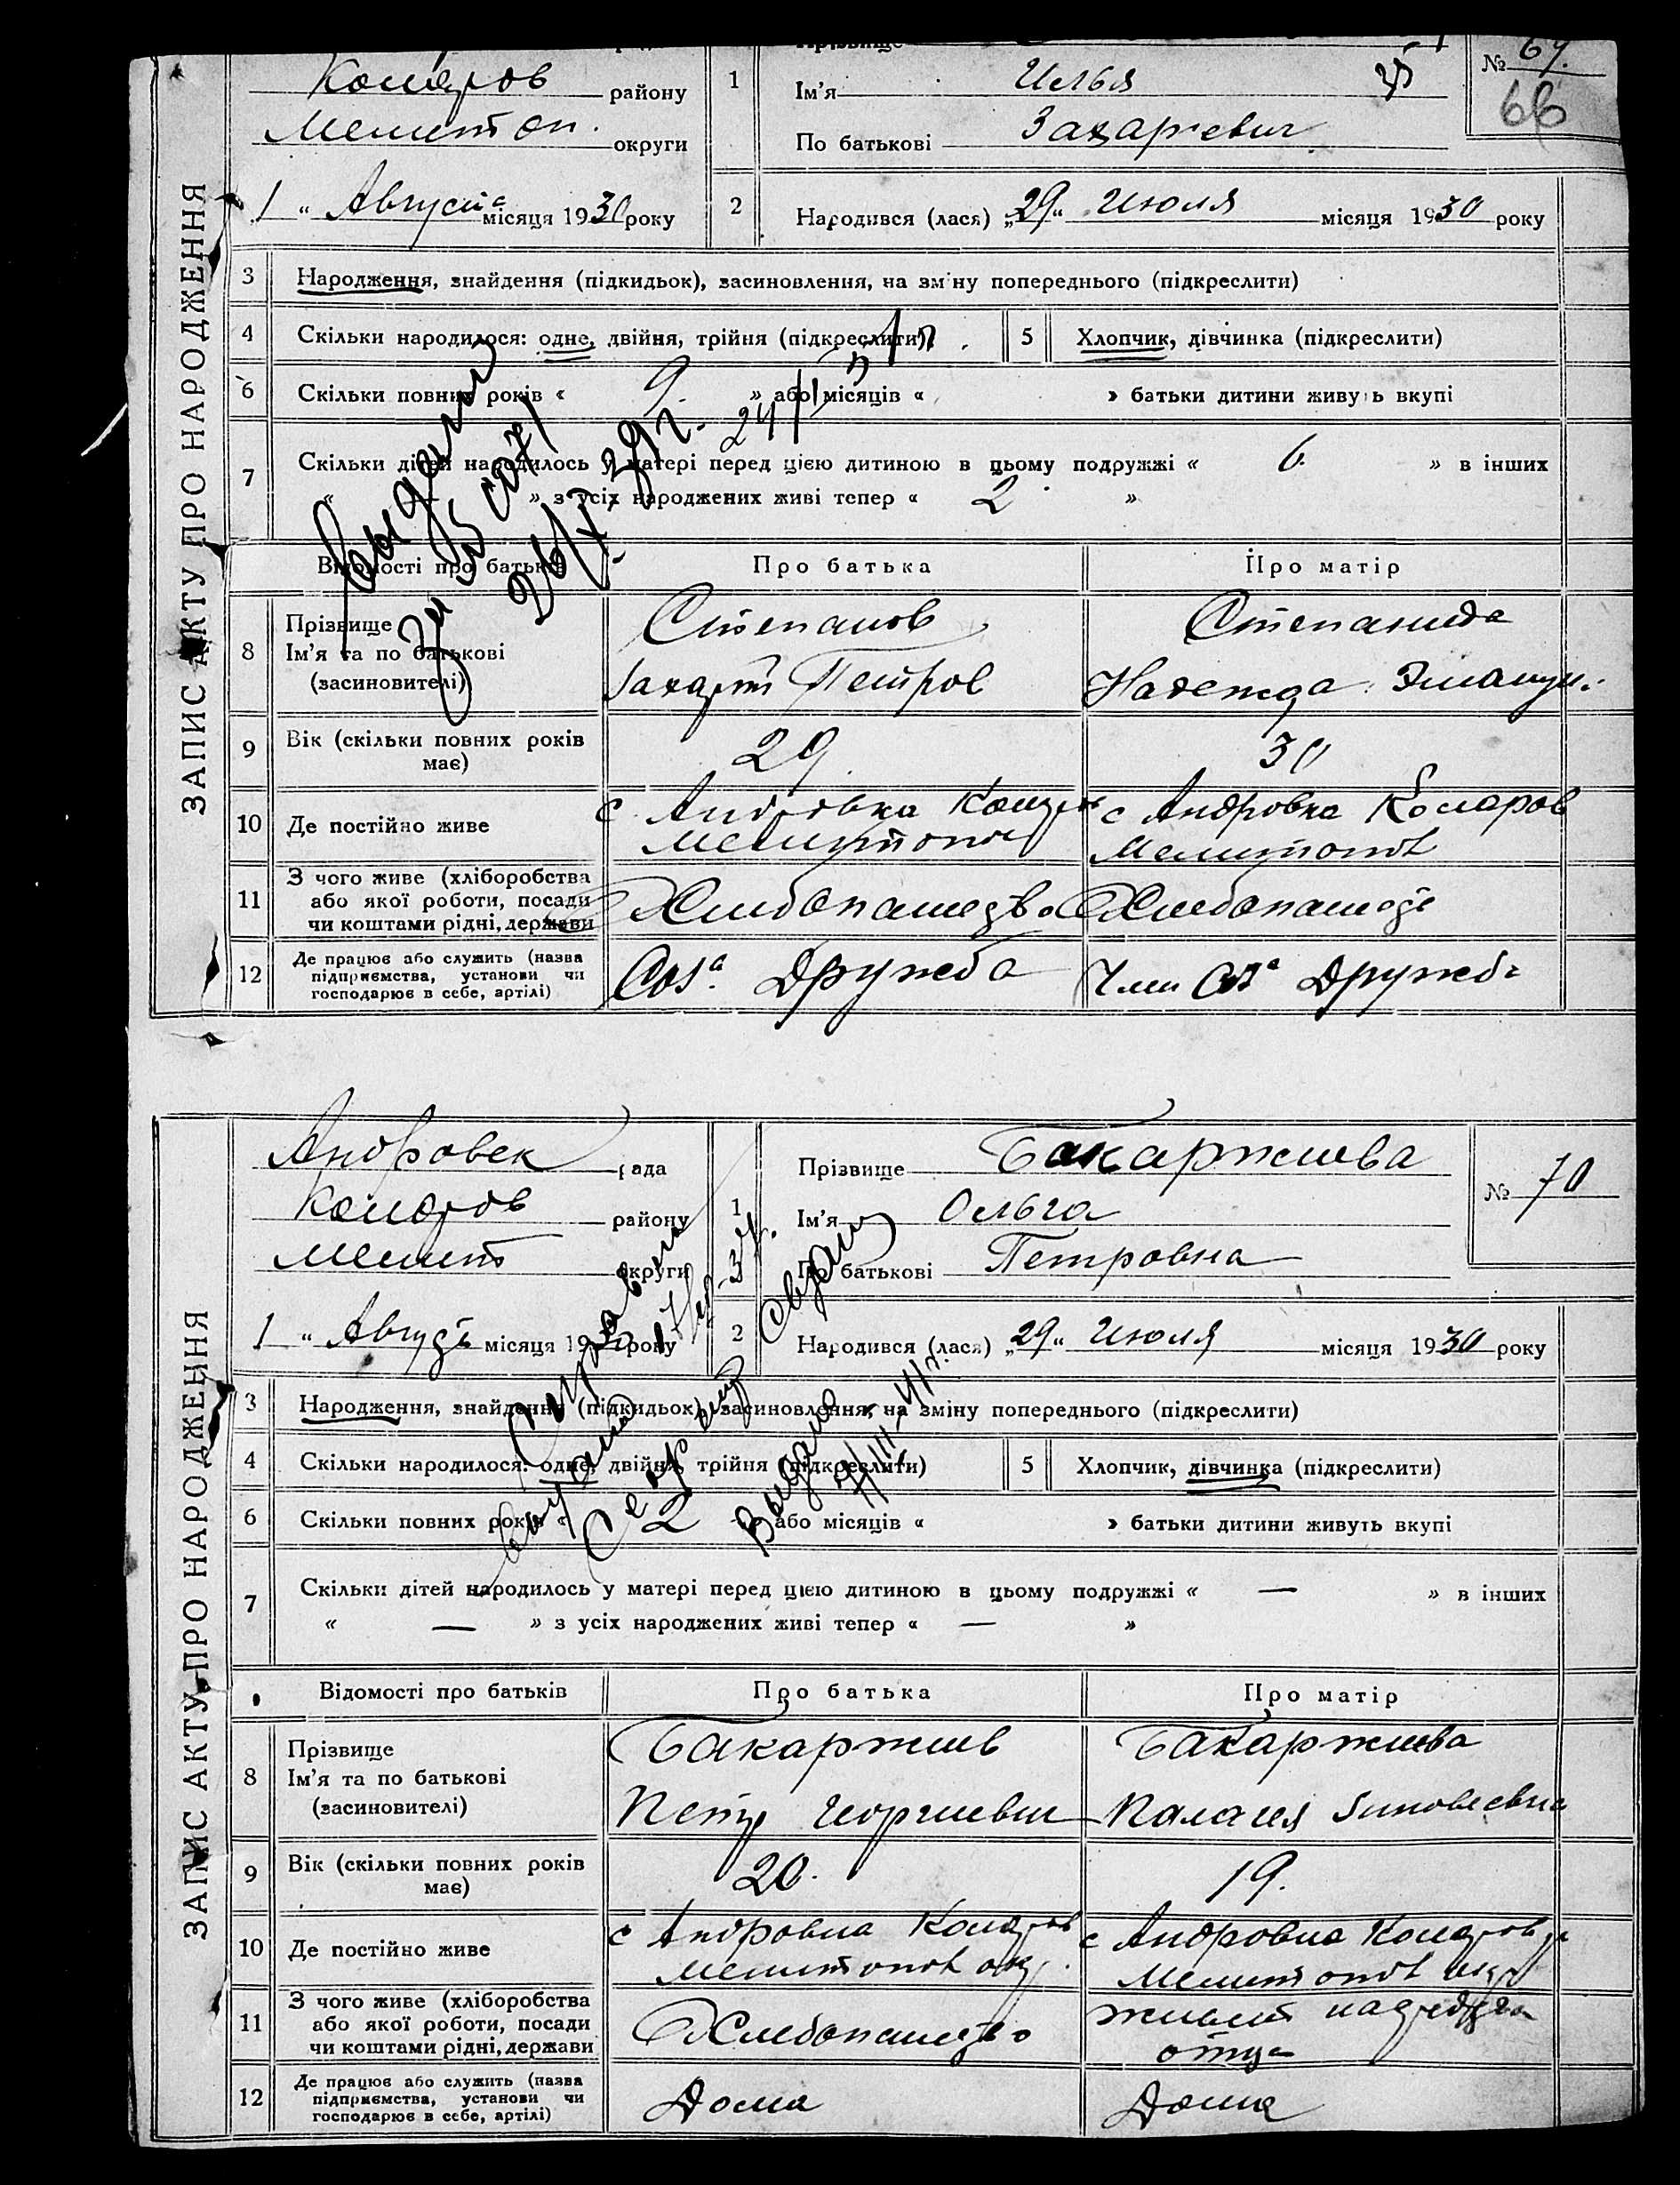 № 69.
Комаров району
1
Ім'я Илья
66
Мелитоп. округи
По батькові Захарьевич
1 " Августа місяця 1930 року
2
Народився (лася) „29" Июля місяця 1930 року
ЗАПИС АКТУ ПРО НАРОДЖЕННЯ
3 Народження, знайдення (підкидьок), засиновлення, на зміну попереднього (підкреслити)
4 Скільки народилося: одне, двійня, трійня (підкреслити)
5 Хлопчик, дівчинка (підкреслити)
6 Скільки повних років « 9. » або місяців « » батьки дитини живуть вкупі
7 Скільки дітей народилось у матері перед цією дитиною в цьому подружжі « 6. » в інших
« — » з усіх народжених живі тепер « 2. »
Відомості про батьків
Про батька
Про матір
8 Прізвище
Ім'я та по батькові
(засиновителі)
Степанов
Захарий Петров
Степанида
Надежда
9 Вік (скільки повних років
має)
29
30
10 Де постійно живе
с Андровка Комаров
Мелитопол
с Андровка Комаров
Мелитопол
11 З чого живе (хліборобства
або якої роботи, посади
чи коштами рідні, держави
Хлебопашество
Хлебопашест
12 Де працює або служить (назва
підприємства, установи чи
господарює в себе, артілі)
Дружба
Член Дружба
Андровск рада
1
Прізвище Бакаржиева
№ 70
Комаров району
Ім'я Ольга
Мелит округи
По батькові Петровна
1 " Август місяця 1930 року
2
Народився (лася) „29" Июля місяця 1930 року
ЗАПИС АКТУ ПРО НАРОДЖЕННЯ
3 Народження, знайдення (підкидьок), засиновлення, на зміну попереднього (підкреслити)
4 Скільки народилося: одне, двійня, трійня (підкреслити)
5 Хлопчик, дівчинка (підкреслити)
6 Скільки повних років « 2 » або місяців « » батьки дитини живуть вкупі
7 Скільки дітей народилось у матері перед цією дитиною в цьому подружжі « — » в інших
« — » з усіх народжених живі тепер « — »
Відомості про батьків
Про батька
Про матір
8 Прізвище
Ім'я та по батькові
(засиновителі)
Бакаржиев
Петр Георгиевич
Бакаржиева
Палагия Зиновеевна
9 Вік (скільки повних років
має)
20.
19.
10 Де постійно живе
с Андровка Комаров
Мелитопол окр.
с Андровка Комаров
Мелитопол окр
11 З чого живе (хліборобства
або якої роботи, посади
чи коштами рідні, держави
Хлебопашество
живет на средства
отца
12 Де працює або служить (назва
підприємства, установи чи
господарює в себе, артілі)
Дома
Дома